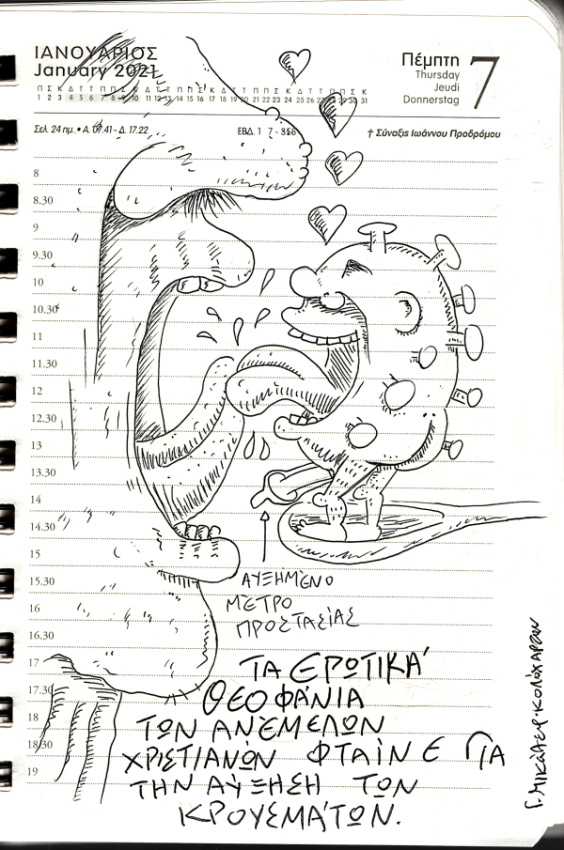 ΙΑΝΟΥΑΡΙΟΣ
January 2021
Πέμπτη
Thursday
Jeudi
Donnerstag
7
Π Σ Κ Δ Τ Τ Π Π Σ Κ Δ Τ Τ Π Π Σ Κ Δ Τ Τ Π Π Σ Κ Δ Τ Τ Π Π Σ Κ
1 2 3 4 5 6 7 8 9 10 11 12 13 14 15 16 17 18 19 20 21 22 23 24 25 26 27 28 29 30 31
Σελ. 24 ημ. • Α. 07.41 - Δ. 17.22
ΕΒΔ. 1 7 - 358
† Σύναξις Ιωάννου Προδρόμου
8
8.30
9
9.30
10
10.30
11
11.30
12
12.30
13
13.30
14
14.30
15
15.30
16
16.30
17
17.30
18
18.30
19
ΑΥΞΗΜΕΝΟ
ΜΕΤΡΟ
ΠΡΟΣΤΑΣΙΑΣ
ΤΑ ΕΡΩΤΙΚΑ
ΘΕΟΦΑΝΙΑ
ΤΩΝ ΑΝΕΜΕΛΩΝ
ΧΡΙΣΤΙΑΝΩΝ ΦΤΑΙΝΕ ΓΙΑ
ΤΗΝ ΑΥΞΗΣΗ ΤΩΝ
ΚΡΟΥΣΜΑΤΩΝ.